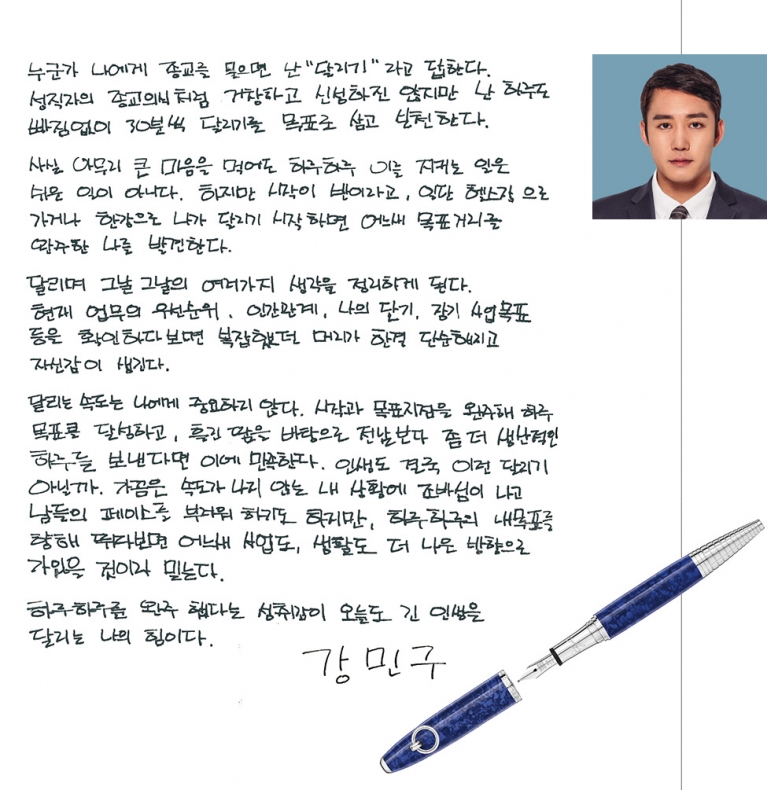 누군가 나에게 종교를 물으면 난 "달리기" 라고 답한다.
성직자의 종교의식처럼 거창하고 신성하진 않지만 난 하루도
빠짐없이 30분씩 달리기를 목표로 삼고 실천한다.
사실 아무리 큰 마음을 먹어도 하루하루 이를 지키는 일은
쉬운 일이 아니다. 하지만 시작이 반이라고, 일단 헬스장 으로
가거나 한강으로 나가 달리기 시작하면 어느새 목표거리를
완주한 나를 발견한다.
달리며 그날 그날의 여러가지 생각을 정리하게 된다.
현재 업무의 우선순위, 인간관계, 나의 단기, 장기 사업목표
등을 확인하다보면 복잡했던 머리가 한결 단순해지고
자신감이 생긴다.
달리는 속도는 나에게 중요하지 않다. 시작과 목표지점을 완주해 하루
목표를 달성하고, 흘린 땀을 바탕으로 전날보다 좀 더 생산적인
하루를 보낸다면 이에 만족한다. 인생도 결국 이런 달리기
아닌가. 가끔은 속도가 나지 않는 내 상황에 조바심이 나고
남들의 페이스를 부러워 하기도 하지만, 하루하루의 내목표를
향해 뛰다보면 어느새 사업도, 생활도 더 나은 방향으로
가있을 것이라 믿는다.
하루하루를 완주 했다는 성취감이 오늘도 긴 인생을
달리는 나의 힘이다.
강민구